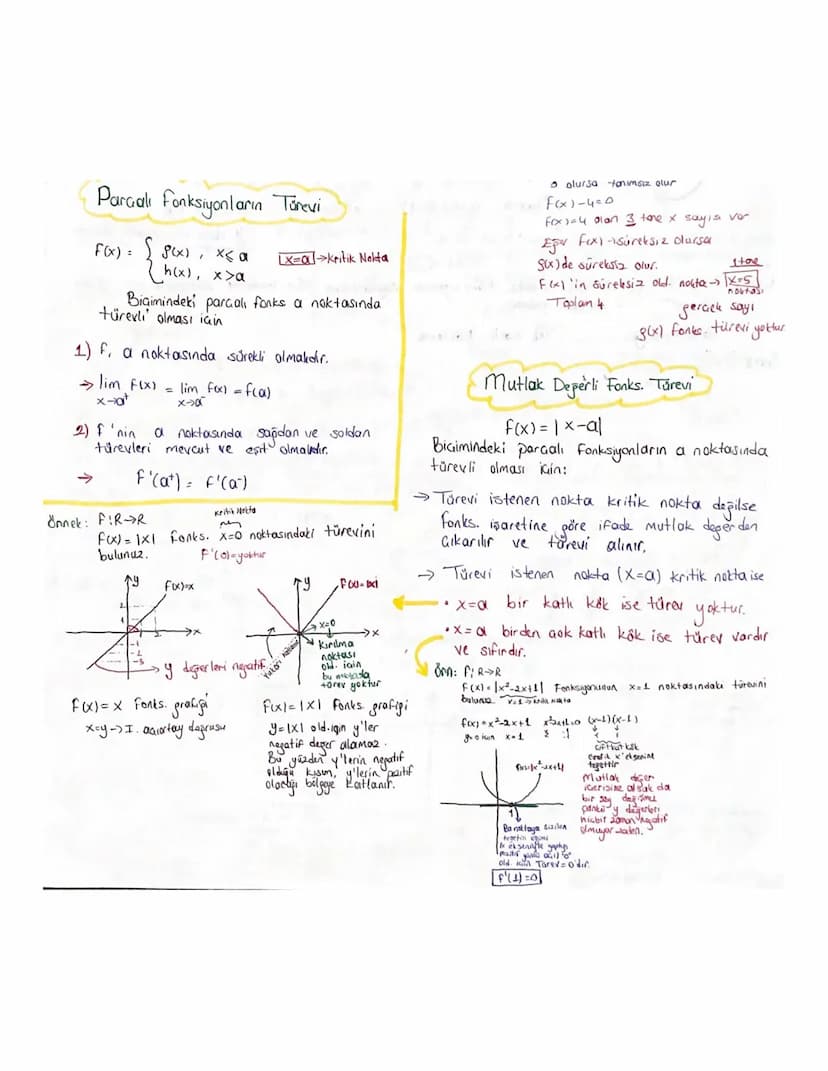 Parçalı Fonksiyonların Türevi
F(x) = { g(x) , x ≤ a
h(x) , x > a
x=a → Kritik Nokta
Biçimindeki parçalı fonks a noktasında
türevli olması için
1) f, a noktasında sürekli olmalıdır.
→ lim F(x) = lim f(x) = f(a)
x→a⁺ x→a⁻
2) f'nin a noktasında sağdan ve soldan
türevleri mevcut ve eşit olmalıdır.
→ F'(a⁺) = F'(a⁻)
Kritik Nokta
Örnek: F:R→R
F(x) = |x| fonks. x=0 noktasındaki türevini
bulunuz. F'(0)=yoktur
y
F(x)=x
x
y değerleri negatif
F(x) = x Fonks. grafiği
x=y → I. açıortay doğrusu
y
F(x)=|x|
x=0
x
Kırılma
noktası
old. için
bu noktada
türev yoktur
F(x) = |x| Fonks. grafiği
y=|x| old. için y'ler
negatif değer alamaz.
Bu yüzden y'lerin negatif
olduğu kısım, y'lerin pozitif
olacağı bölgeye katlanır.
0 olursa tanımsız olur
F(x)-4=0
F(x)=4 olan 3 tane x sayısı var
Eğer F(x) süreksiz olursa
g(x) de süreksiz olur.
1 tane
F(x)'in süreksiz old. nokta → x=5
noktası
Toplam 4
gerçek sayı
g(x) fonks. türevi yoktur
Mutlak Değerli Fonks. Türevi
f(x) = |x-a|
Biçimindeki parçalı fonksiyonların a noktasında
türevli olması için:
→ Türevi istenen nokta kritik nokta değilse
fonks. işaretine göre ifade mutlak değerden
çıkarılır ve türevi alınır.
→ Türevi istenen nokta (x=a) kritik nokta ise
• x=a bir katlı kök ise türev yoktur.
• x=a birden çok katlı kök ise türev vardır
ve sıfırdır.
Örn: F:R→R
F(x) = |x²-2x+1| Fonksiyonunun x=1 noktasındaki türevini
bulunuz x=1 → kritik nokta
f(x) = x²-2x+1 (x-1)(x-1)
x=1
Çift kat kök
Grafik x eksenine
teğettir
f(x)=|x²-2x+1|
Mutlak değer
içerisine alsak da
bir şey değişmez
çünkü y değerleri
hiçbir zaman negatif
olmuyor zaten.
1
Bu noktaya çizilen
teğetin eğimi
x ekseniyle yaptığı
pozitif yönlü açı "0"
old. için Türev=0'dır.
F'(1)=0